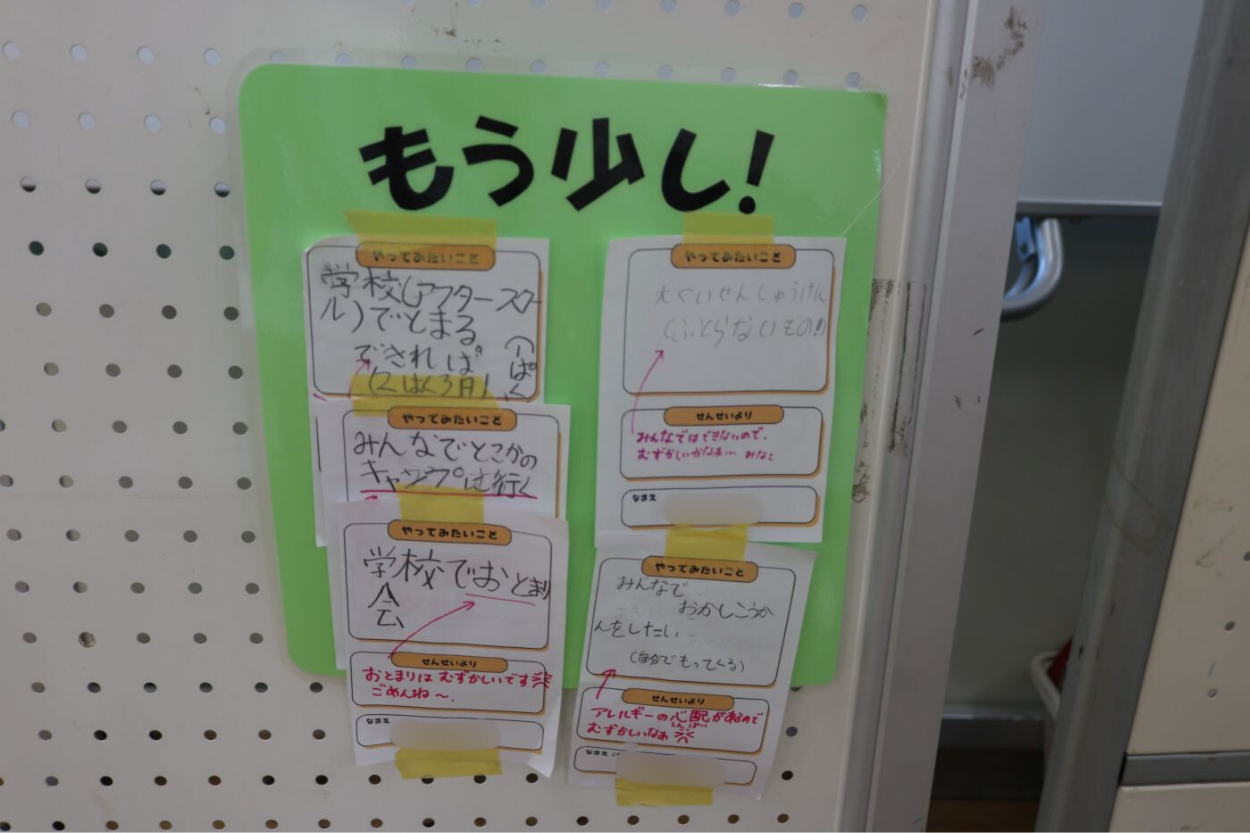 もう少し!
やってみたいこと
学校(アフタースクー
ル)でとまる
できれば
(2はく3日)
やってみたいこと
みんなでどこかの
キャンプに行く
やってみたいこと
学校でおとまり
会
せんせいより
おとまりはむずかしいです
ごめんね〜。
なまえ
やってみたいこと
大ぐいせんしゅけん
(ふとらないもの!!)
せんせいより
みんなではできないので、
むずかしいかなぁ…
なまえ
やってみたいこと
みんなで
おかしこうか
んをしたい
(自分でもってくる)
せんせいより
アレルギーの心配があるので
しんぱい
むずかしいなぁ
なまえ